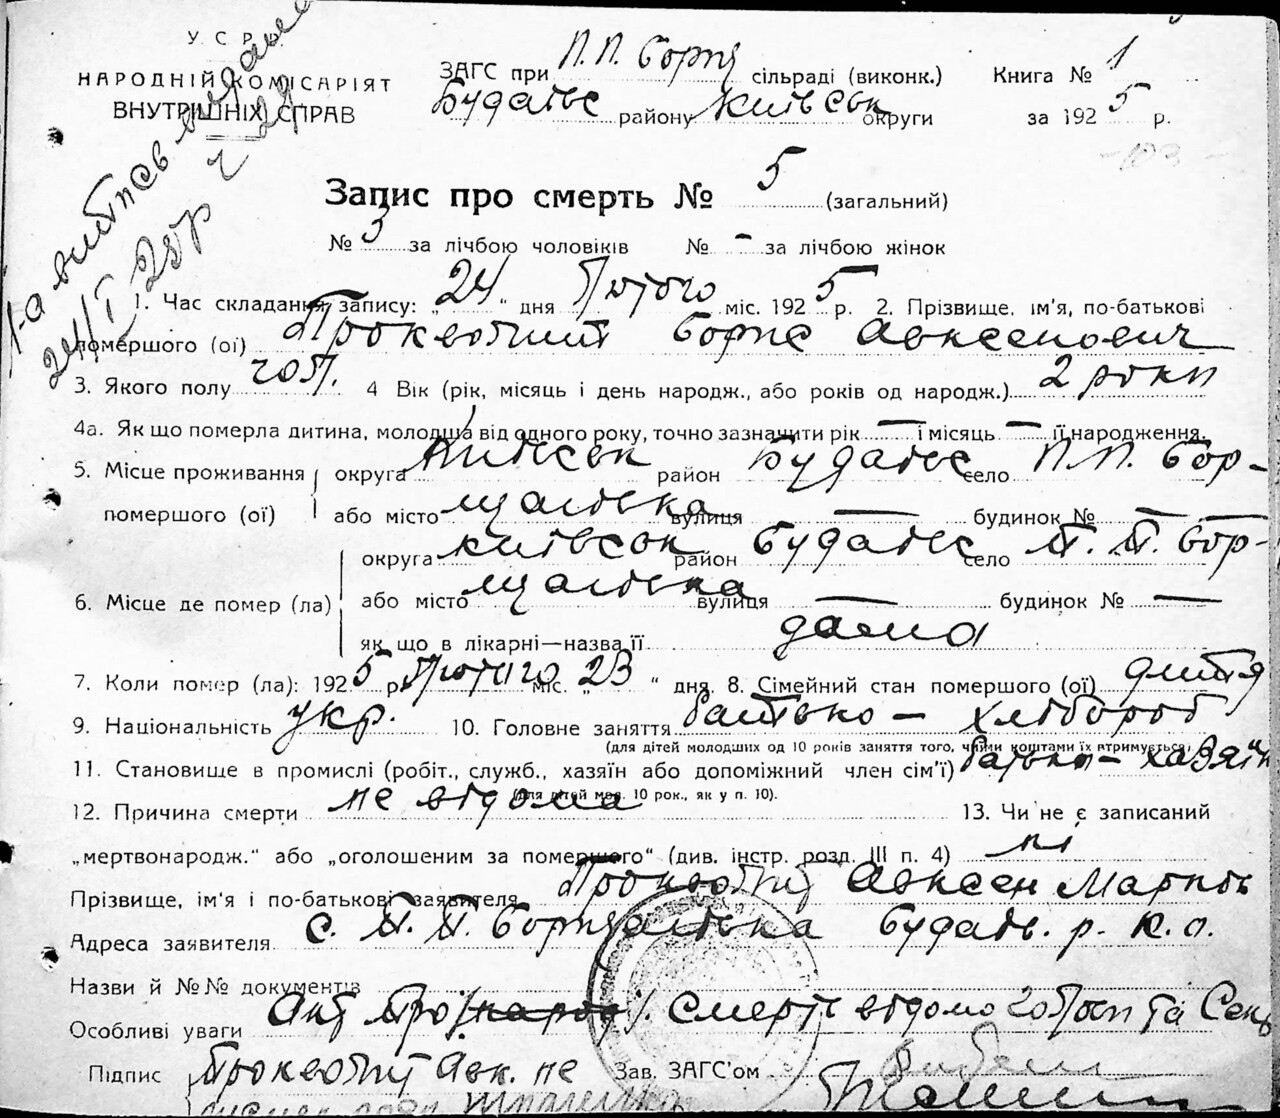 У. С. Р. Р.
НАРОДНІЙ КОМІСАРІЯТ
ВНУТРІШНІХ СПРАВ
1-а випись видана
24/I 25р ч 24
ЗАГС при П.П. Борщ сільраді (виконк.) Книга № 1
Будаївс району Київськ округи за 1925 р.
103
Запис про смерть № 5 (загальний)
№ 3 за лічбою чоловіків № – за лічбою жінок
1. Час складання запису: „ 24 “ дня Лютого міс. 1925 р. 2. Прізвище, ім'я, по-батькові
помершого (ої) Борис Авксенович
3. Якого полу чол. 4 Вік (рік, місяць і день народж., або років од народж.) 2 роки
4а. Як що померла дитина, молодша від одного року, точно зазначити рік — і місяць — її народження.
5. Місце проживання округа Київськ район Будаївс село П.П. Бор-
помершого (ої) або місто щагівка вулиця — будинок № —
округа Київськ район Будаївс село П. П. Бор-
6. Місце де помер (ла) або місто щагівка вулиця — будинок № —
як що в лікарні—назва її дома
7. Коли помер (ла): 1925 р. Лютого міс. „ 23 “ дня. 8. Сімейний стан помершого (ої) дитя
9. Національність укр. 10. Головне заняття батько – хлібороб
(для дітей молодших од 10 років заняття того, чиїми коштами їх втримується)
11. Становище в промислі (робіт., служб., хазяїн або допоміжний член сім'ї) батько – хазяїн
(для дітей мол. 10 рок., як у п. 10).
12. Причина смерти не відома 13. Чи не є записаний
„мертвонародж.“ або „оголошеним за помершого“ (див. інстр. розд. III п. 4) ні
Прізвище, ім'я і по-батькові заявителя Авксен Марков
Адреса заявителя с. П. П. Борщагівка Будаїв. р. К. о.
Назви й №№ документів
Особливі уваги Акт про смерть відомо та
Підпис Авк. не Зав. ЗАГС'ом